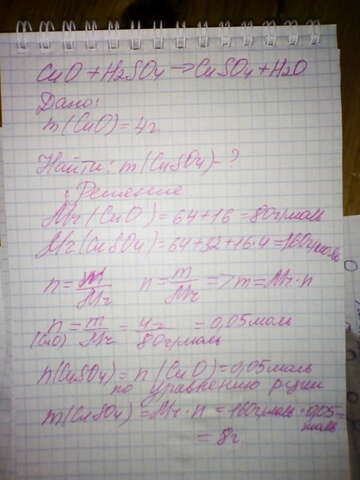 CuO + H2SO4 → CuSO4 + H2O
Дано:
m(CuO) = 4г
Найти: m(CuSO4) - ?
Решение
Mr(CuO) = 64+16 = 80г/моль
Mr(CuSO4) = 64+32+16·4 = 160г/моль
n = m/Mr n = m/Mr => m = Mr·n
n(CuO) = m/Mr = 4г/80г/моль = 0,05моль
n(CuSO4) = n(CuO) = 0,05моль
по уравнению р-ции
m(CuSO4) = Mr·n = 160г/моль · 0,05 =
моль
= 8г